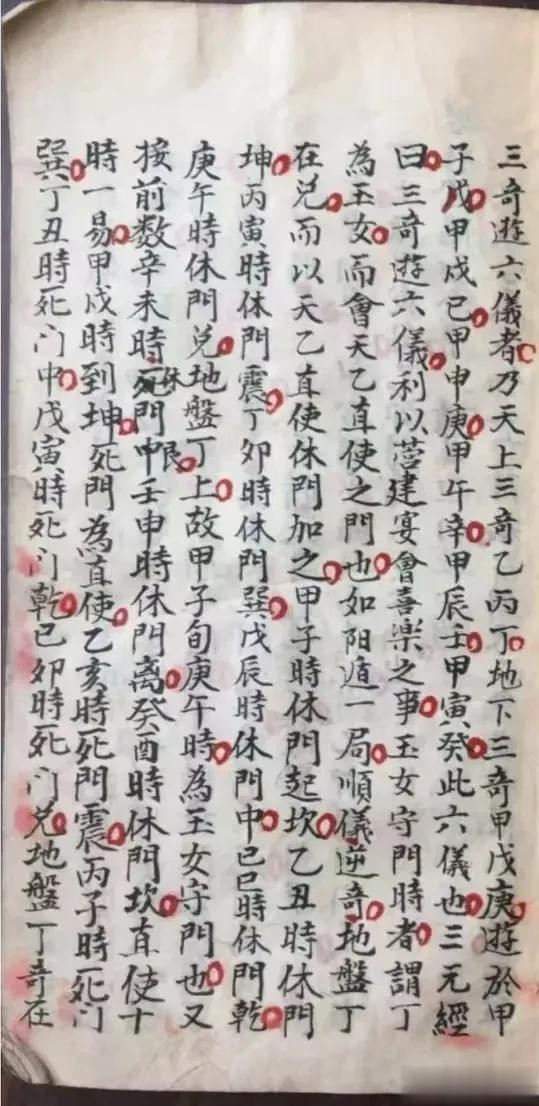 三奇遊六儀者乃天上三奇乙丙丁地下三奇甲戊庚遊於甲
子戊甲戌己甲申庚甲午辛甲辰壬甲寅癸此六儀也三元經
曰三奇遊六儀利以营建宴會喜樂之事玉女守門時者謂丁
為玉女而會天乙直使之門也如阳遁一局順儀逆奇地盤丁
在兌而以天乙直使休門加之甲子時休門起坎乙丑時休門
坤丙寅時休門震丁卯時休門巽戊辰時休門中己巳時休門乾
庚午時休門兌地盤丁上故甲子旬庚午時為玉女守門也又
按前数辛未時休門艮壬申時休門离癸酉時休門坎直使十
時一易甲戌時到坤死門為直使乙亥時死門震丙子時死门
巽丁丑時死门中戊寅時死门乾己卯時死门兌地盤丁奇在